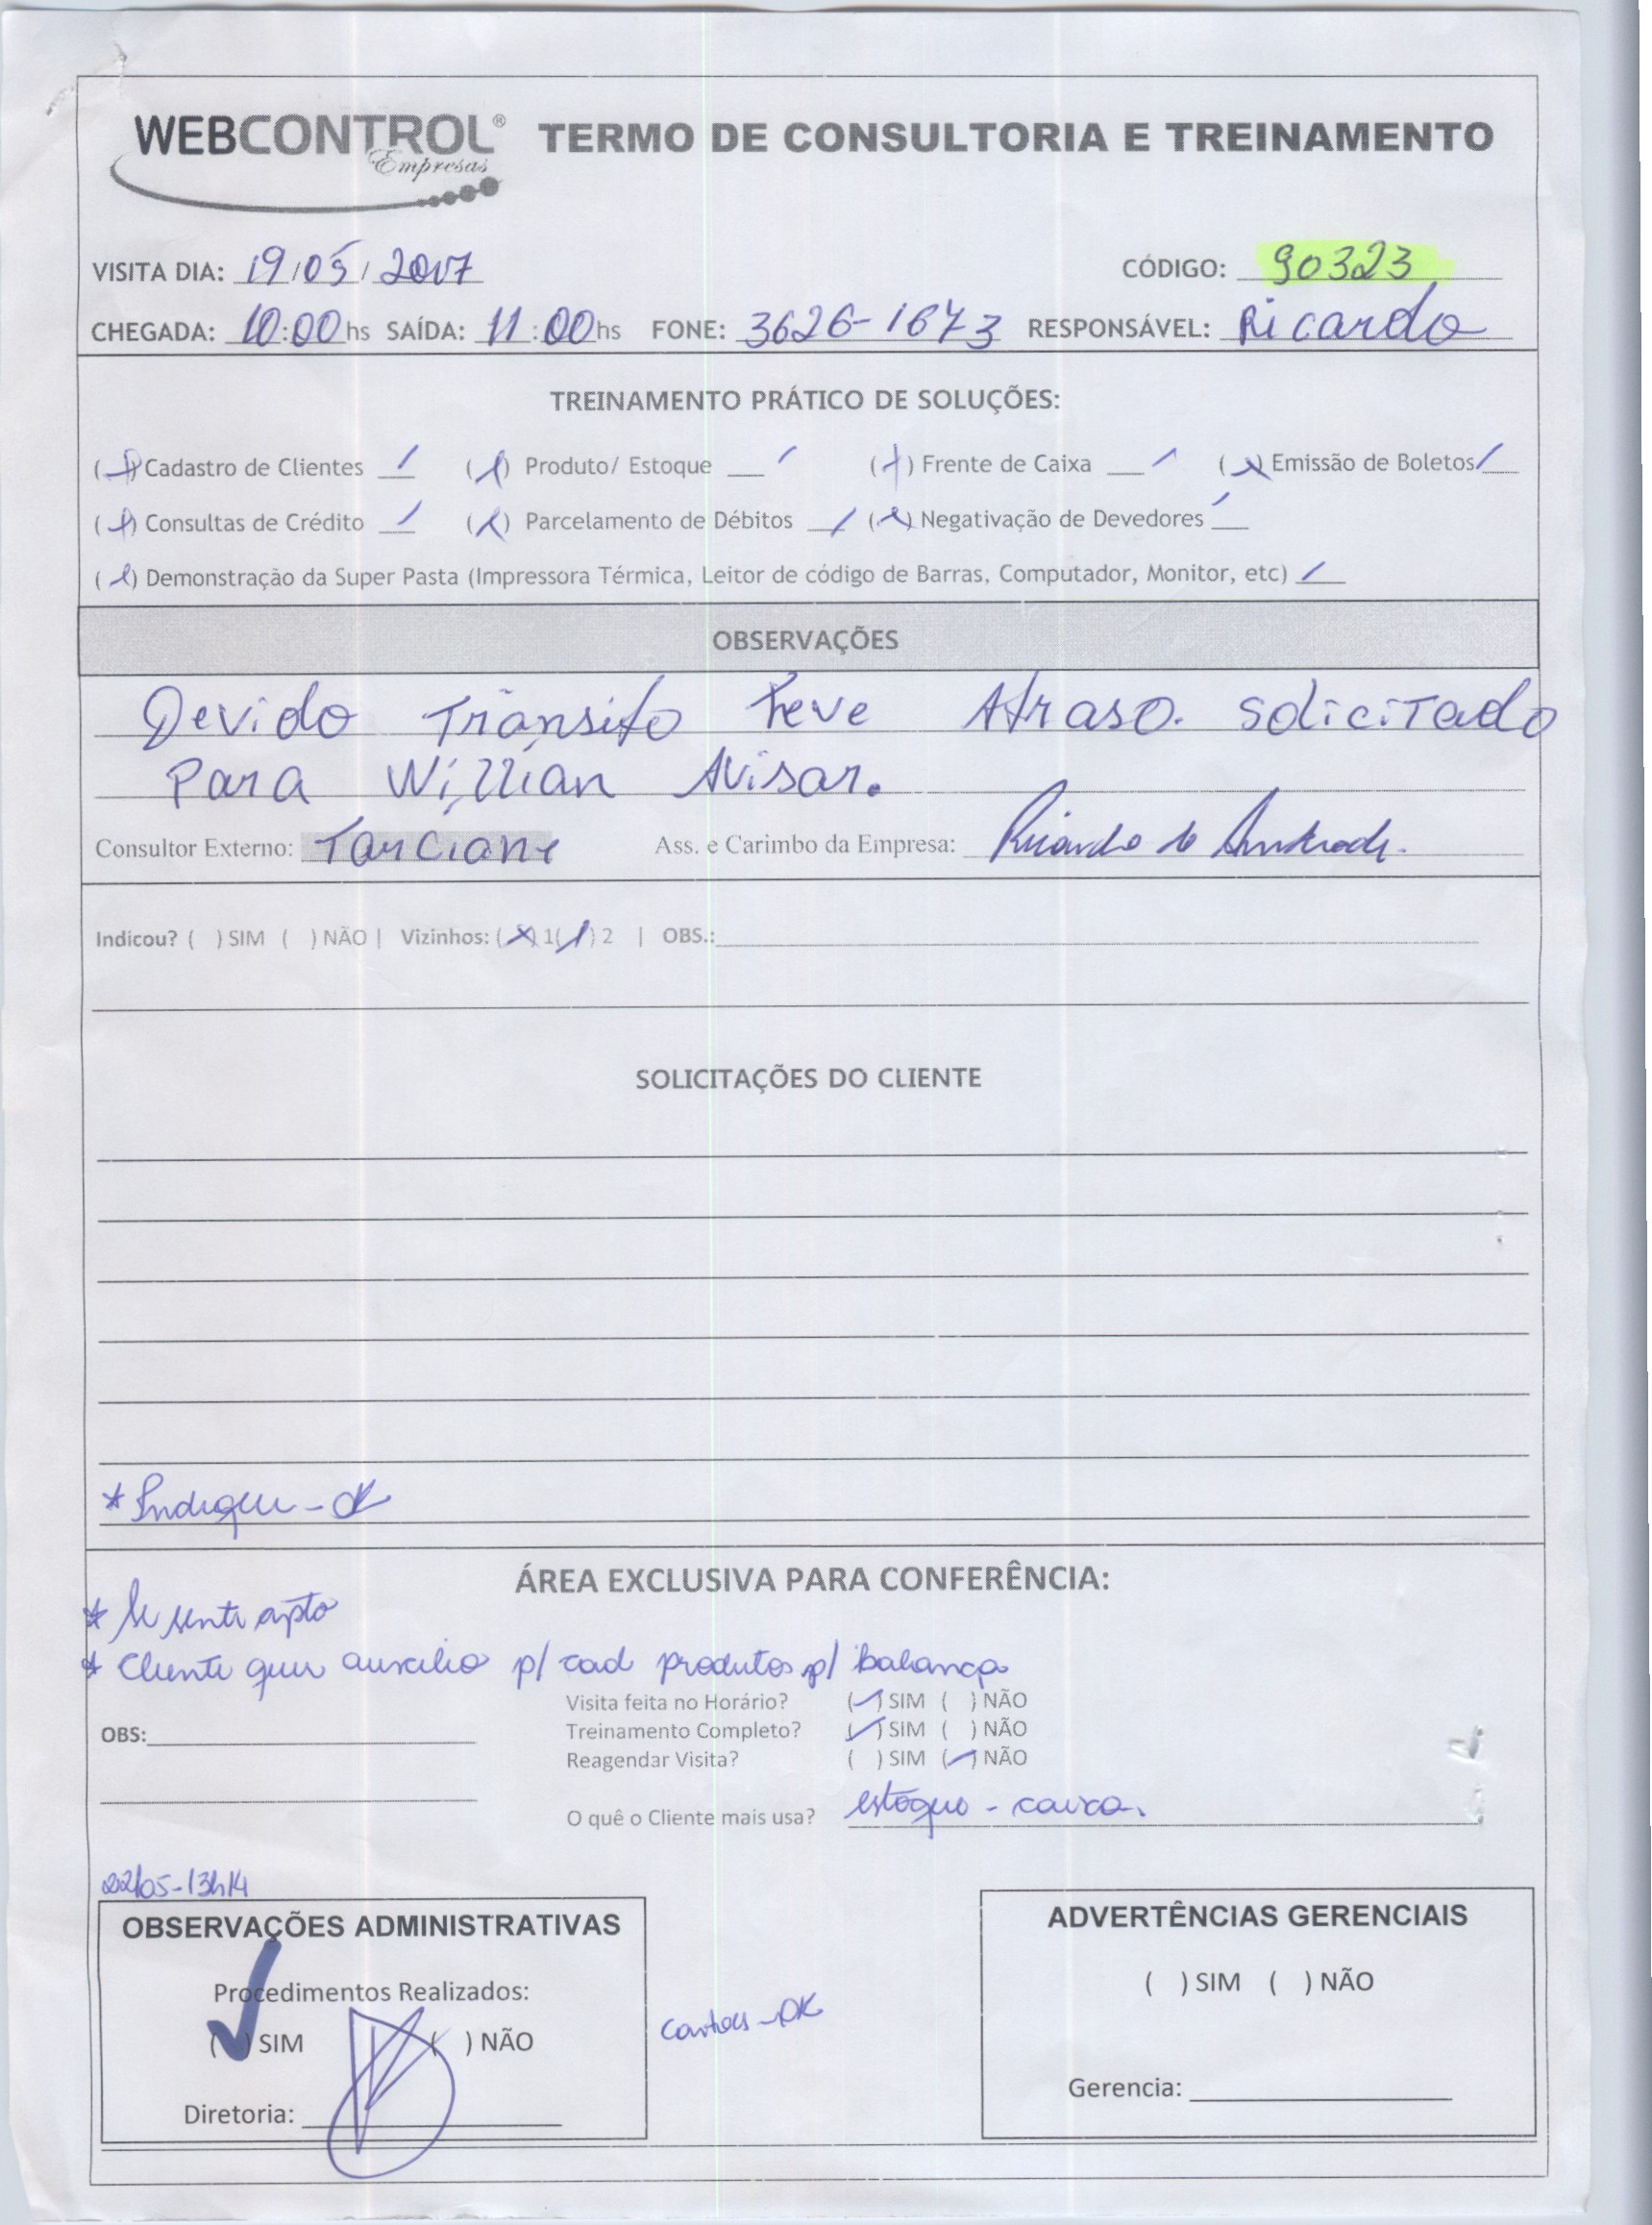 WEBCONTROL® Empresas TERMO DE CONSULTORIA E TREINAMENTO
VISITA DIA: 19/05/2017 CÓDIGO: 90323
CHEGADA: 10:00 hs SAÍDA: 11:00 hs FONE: 3626-1673 RESPONSÁVEL: Ricardo
TREINAMENTO PRÁTICO DE SOLUÇÕES:
(X) Cadastro de Clientes / (X) Produto/ Estoque / (X) Frente de Caixa / (X) Emissão de Boletos /
(X) Consultas de Crédito / (X) Parcelamento de Débitos / (X) Negativação de Devedores /
(X) Demonstração da Super Pasta (Impressora Térmica, Leitor de código de Barras, Computador, Monitor, etc) /
OBSERVAÇÕES
Devido Trânsito teve Atraso. solicitado
Para Willian Avisar.
Consultor Externo: Tarciane Ass. e Carimbo da Empresa: Ricardo de Andrade.
Indicou? ( ) SIM ( ) NÃO | Vizinhos: (X) 1 (X) 2 | OBS.:
SOLICITAÇÕES DO CLIENTE
* Indiquei - OK
ÁREA EXCLUSIVA PARA CONFERÊNCIA:
* Se sente apto
* Cliente quer auxilio p/ cad produtos p/ balança
Visita feita no Horário? (✓) SIM ( ) NÃO
OBS: Treinamento Completo? (✓) SIM ( ) NÃO
Reagendar Visita? ( ) SIM (✓) NÃO
O quê o Cliente mais usa? estoque - caixa.
22/05-13h14
OBSERVAÇÕES ADMINISTRATIVAS ADVERTÊNCIAS GERENCIAIS
Procedimentos Realizados: ( ) SIM ( ) NÃO
(✓) SIM ( ) NÃO OK
Diretoria: Gerencia: